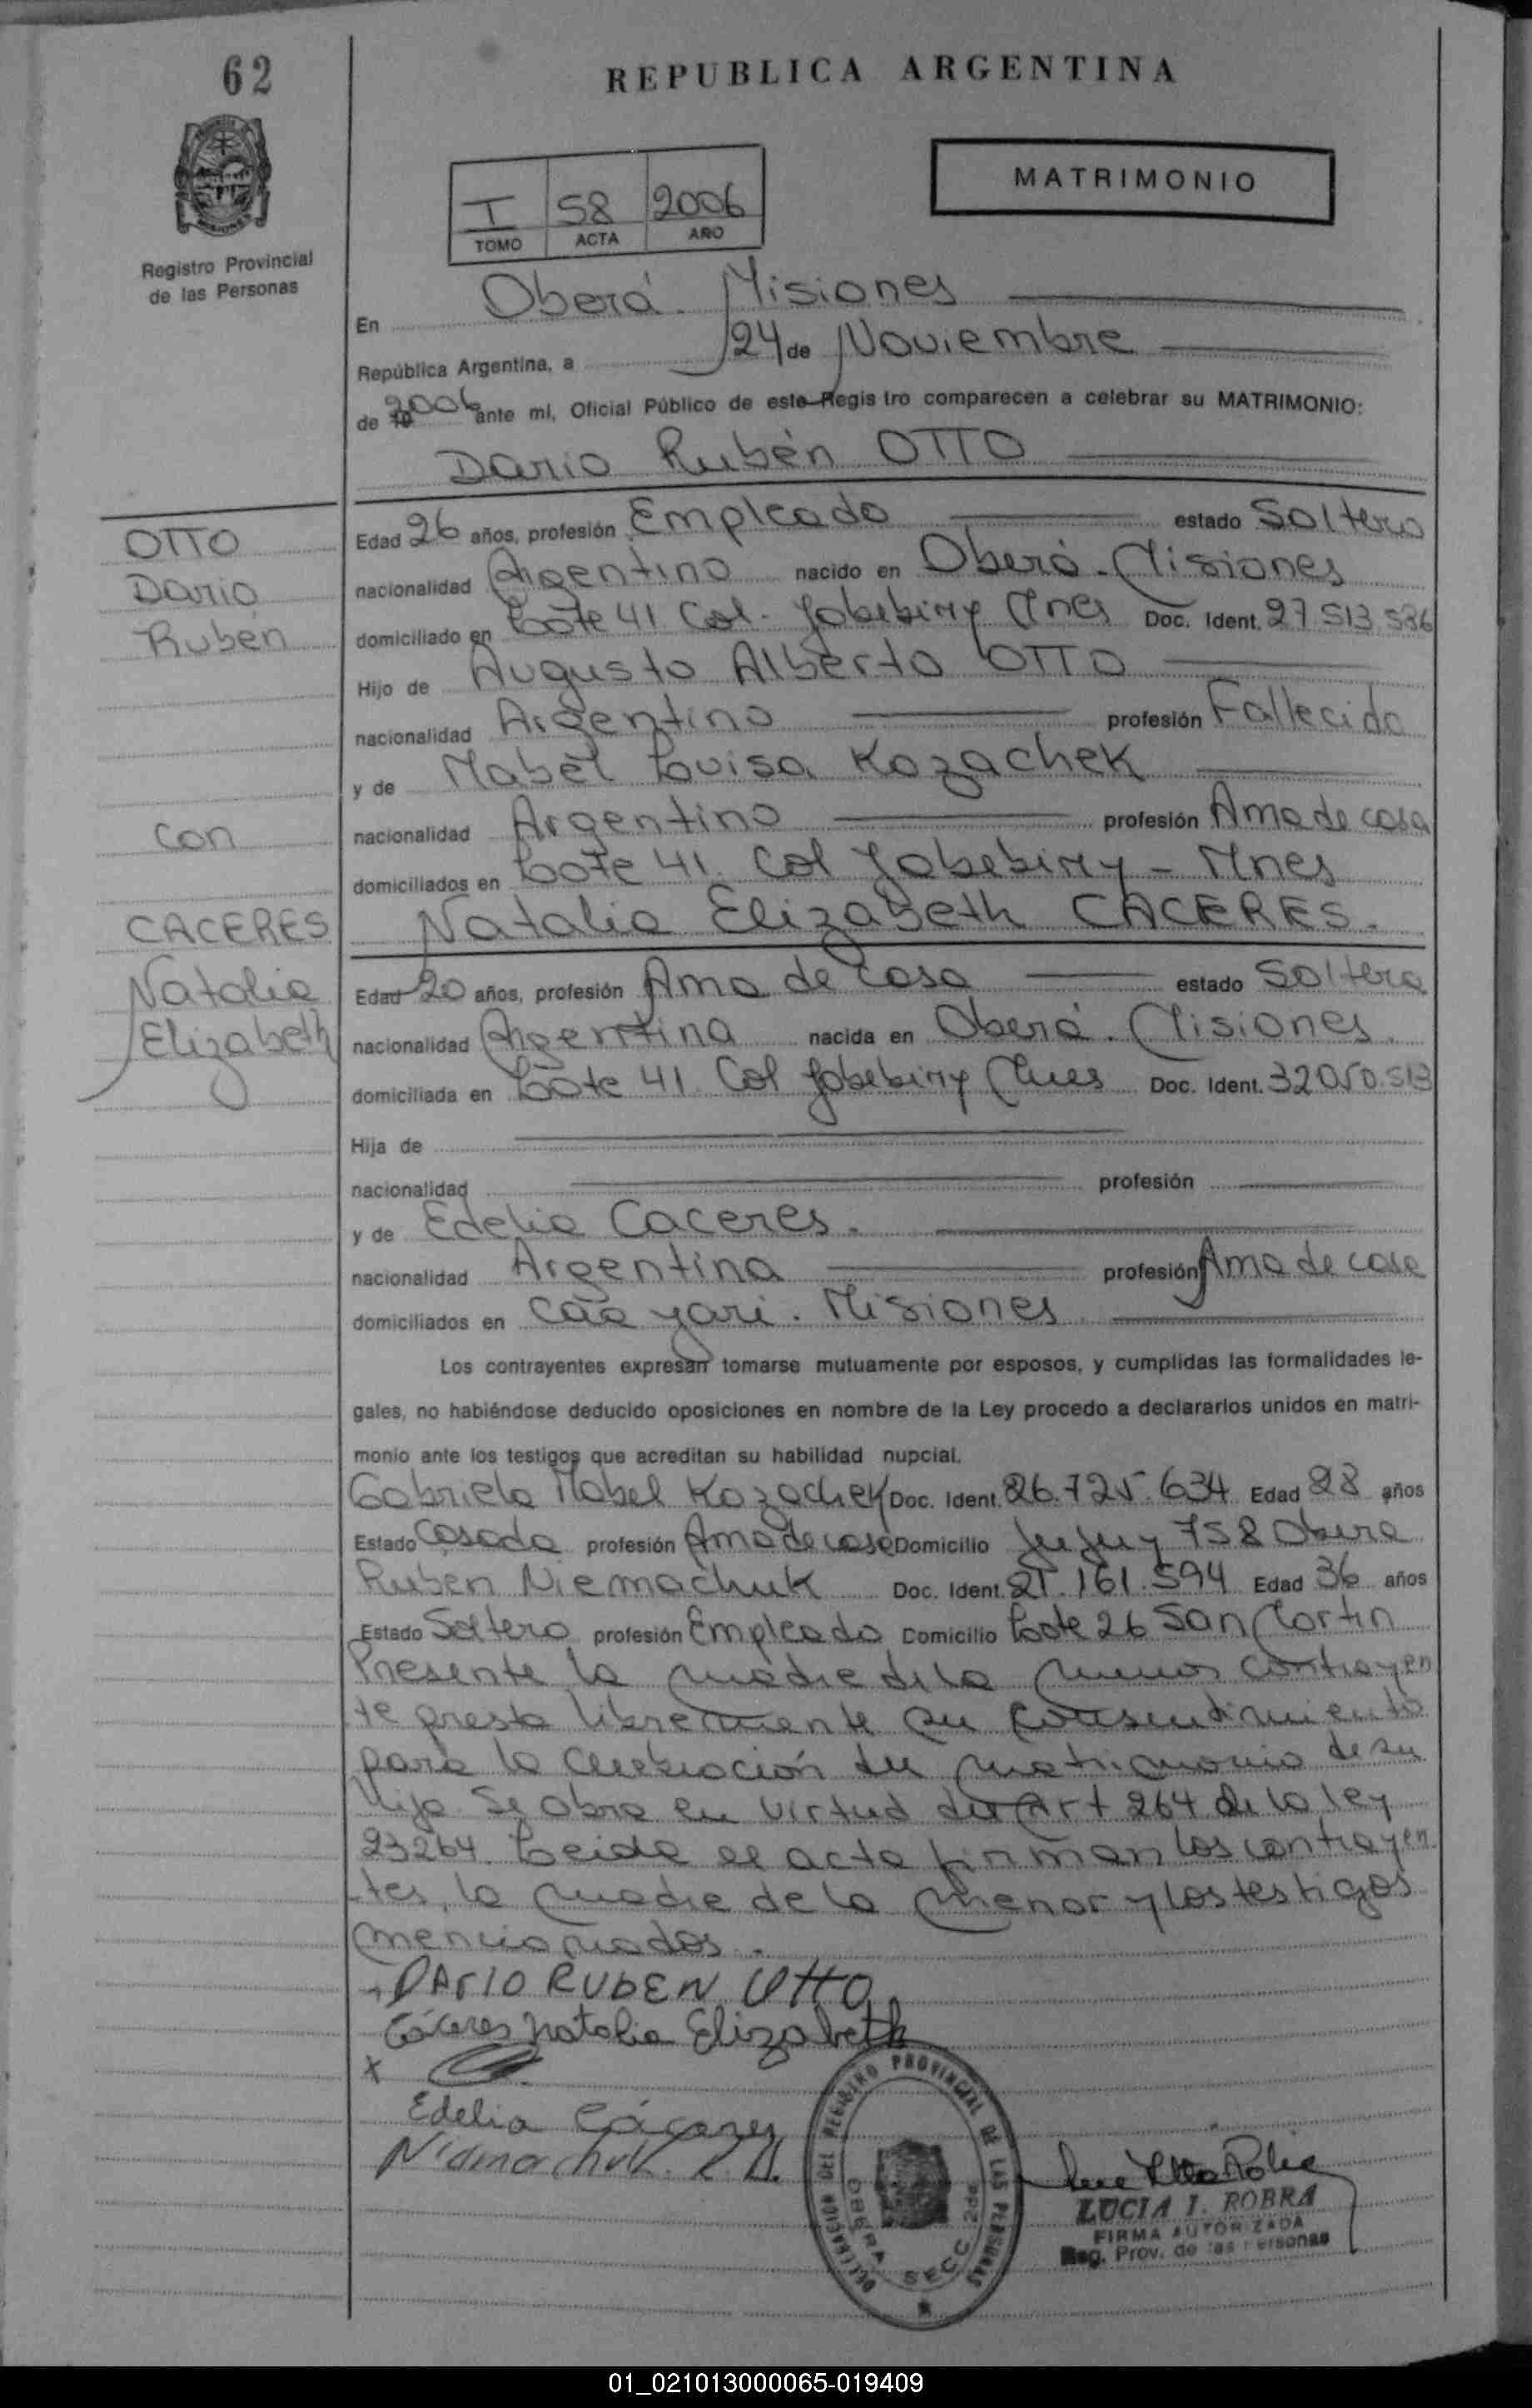 62
REPUBLICA ARGENTINA
MATRIMONIO
I 58 2006
TOMO ACTA AÑO
Registro Provincial
de las Personas
En Oberá. Misiones
República Argentina, a 24 de Noviembre
de 2006 ante mí, Oficial Público de este Registro comparecen a celebrar su MATRIMONIO:
Dario Rubén OTTO
OTTO
Dario
Rubén
con
CACERES
Natalia
Elizabeth
Edad 26 años, profesión Empleado estado Soltero
nacionalidad Argentino nacido en Oberá. Misiones
domiciliado en Lote 41 Col. Yobebiry Mnes Doc. Ident. 27.513.536
Hijo de Augusto Alberto OTTO
nacionalidad Argentino profesión Fallecido
y de Mabel Louisa Kozachek
nacionalidad Argentino profesión Ama de casa
domiciliados en Lote 41. Col Yobebiry - Mnes
Natalia Elizabeth CACERES.
Edad 20 años, profesión Ama de casa estado Soltera
nacionalidad Argentina nacida en Oberá. Misiones.
domiciliada en Lote 41. Col Yobebiry Mnes Doc. Ident. 32.050.513
Hija de
nacionalidad profesión
y de Edelia Caceres.
nacionalidad Argentina profesión Ama de casa
domiciliados en Caa yari. Misiones
Los contrayentes expresan tomarse mutuamente por esposos, y cumplidas las formalidades le-
gales, no habiéndose deducido oposiciones en nombre de la Ley procedo a declararlos unidos en matri-
monio ante los testigos que acreditan su habilidad nupcial.
Gabriela Mabel Kozachek Doc. Ident. 26.725.634 Edad 28 años
Estado Casada profesión Ama de casa Domicilio Jujuy 758 Obera
Ruben Niemachuk Doc. Ident. 21.161.594 Edad 36 años
Estado Soltero profesión Empleado Domicilio Lote 26 San Martin
Presente la madre de la menor contrayen
te presta libremente su consentimiento
para la celebración del matrimonio de su
hija. Se obra en virtud del Art 264 de la ley
23264. Leida el acta firman los contrayen
tes, la madre de la menor y los testigos
mencionados.
DARIO RUBEN OTTO
Cáceres Natalia Elizabeth
x
Edelia Cáceres
Niemachuk. R.
DELEGACION DEL REGISTRO PROVINCIAL DE LAS PERSONAS
OBERA SECC 2da
LUCIA I. ROBRA
FIRMA AUTORIZADA
Reg. Prov. de las Personas
01_021013000065-019409